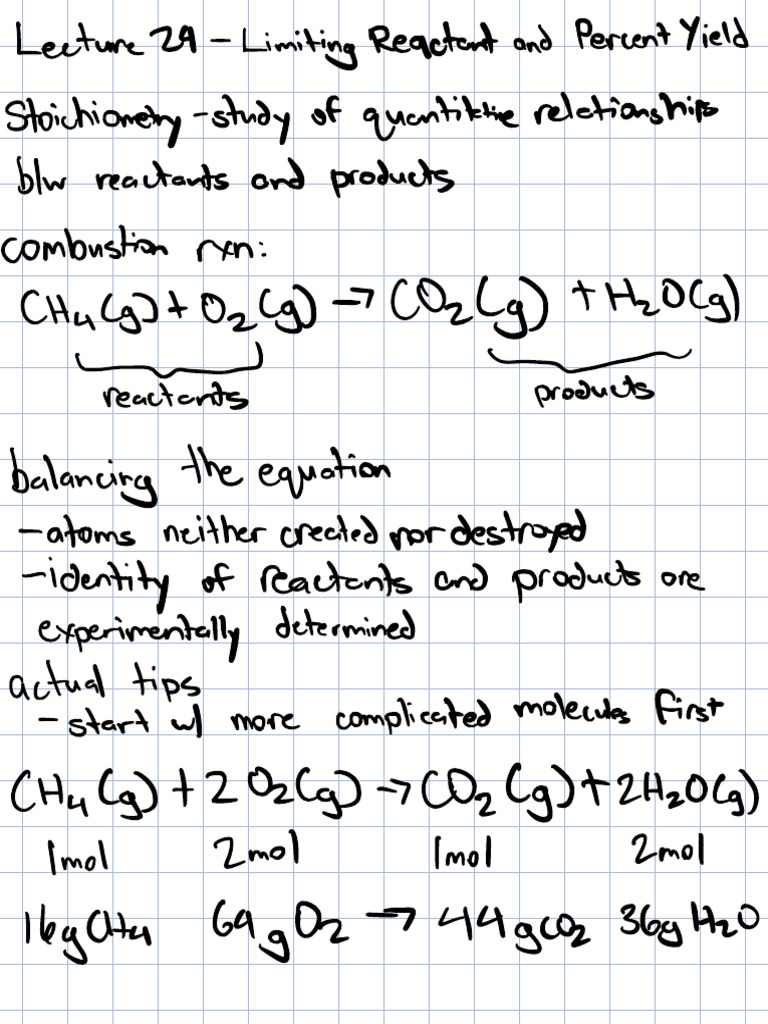 Lecture 29 - Limiting Reactant and Percent Yield
Stoichiometry - study of quantitative relationships
b/w reactants and products
combustion rxn:
CH₄(g) + O₂(g) → CO₂(g) + H₂O(g)
reactants products
balancing the equation
- atoms neither created nor destroyed
- identity of reactants and products are
experimentally determined
actual tips
- start w/ more complicated molecules first
CH₄(g) + 2 O₂(g) → CO₂(g) + 2H₂O(g)
1mol 2mol 1mol 2mol
16g CH₄ 64g O₂ → 44g CO₂ 36g H₂O